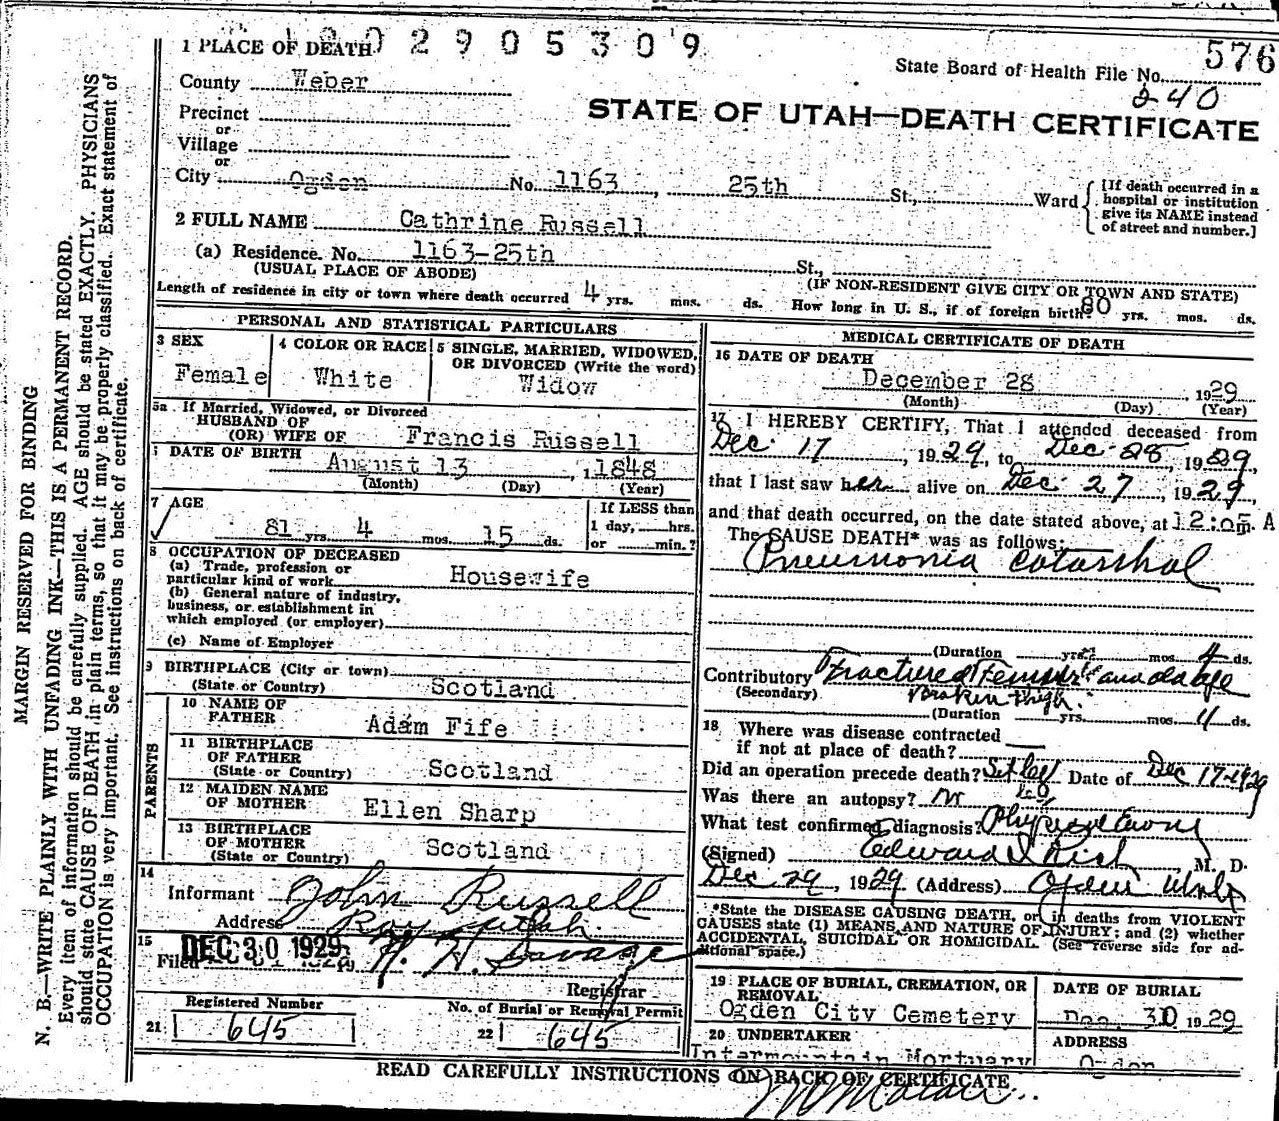 2905309
576
State Board of Health File No.
240
STATE OF UTAH—DEATH CERTIFICATE
1 PLACE OF DEATH
County Weber
Precinct
or
Village
or
City Ogden No. 1163, 25th St., Ward
[If death occurred in a hospital or institution give its NAME instead of street and number.]
2 FULL NAME Cathrine Russell
(a) Residence. No. 1163-25th St.,
(USUAL PLACE OF ABODE) (IF NON-RESIDENT GIVE CITY OR TOWN AND STATE)
Length of residence in city or town where death occurred 4 yrs. mos. ds. How long in U. S., if of foreign birth? 80 yrs. mos. ds.
PERSONAL AND STATISTICAL PARTICULARS
3 SEX
Female
4 COLOR OR RACE
White
5 SINGLE, MARRIED, WIDOWED, OR DIVORCED (Write the word)
Widow
5a If Married, Widowed, or Divorced
HUSBAND OF
(OR) WIFE OF Francis Russell
DATE OF BIRTH
August 13, 1848
(Month) (Day) (Year)
7 AGE
81 yrs. 4 mos. 15 ds.
If LESS than
1 day, hrs.
or min.?
8 OCCUPATION OF DECEASED
(a) Trade, profession or
particular kind of work Housewife
(b) General nature of industry,
business, or establishment in
which employed (or employer)
(c) Name of Employer
9 BIRTHPLACE (City or town)
(State or Country) Scotland
PARENTS
10 NAME OF
FATHER Adam Fife
11 BIRTHPLACE
OF FATHER
(State or Country) Scotland
12 MAIDEN NAME
OF MOTHER Ellen Sharp
13 BIRTHPLACE
OF MOTHER
(State or Country) Scotland
14
Informant John Russell
Address Roy Utah
15
Filed DEC 30 1929 Savage
Registrar
Registered Number
21 645
No. of Burial or Removal Permit
22 645
MEDICAL CERTIFICATE OF DEATH
16 DATE OF DEATH
December 28, 1929
(Month) (Day) (Year)
17 I HEREBY CERTIFY, That I attended deceased from
Dec 17, 1929, to Dec 28, 1929,
that I last saw her alive on Dec 27, 1929,
and that death occurred, on the date stated above, at 12:05m. A
The CAUSE DEATH* was as follows:
Pneumonia catarrhal
(Duration yrs. mos. 4 ds.
Contributory Fractured Femur and old age
(Secondary) Broken thigh.
(Duration yrs. mos. 11 ds.
18 Where was disease contracted
if not at place of death?
Did an operation precede death? Date of Dec 17-1929
Was there an autopsy? No
What test confirmed diagnosis?
(Signed) Edward I Rich M. D.
Dec 29, 1929. (Address) Ogden Utah
*State the DISEASE CAUSING DEATH, or in deaths from VIOLENT
CAUSES state (1) MEANS AND NATURE OF INJURY; and (2) whether
ACCIDENTAL, SUICIDAL OR HOMICIDAL. (See reverse side for ad-
ditional space.)
19 PLACE OF BURIAL, CREMATION, OR
REMOVAL
Ogden City Cemetery
DATE OF BURIAL
Dec. 30 1929
20 UNDERTAKER
Intermountain Mortuary
ADDRESS
Ogden
READ CAREFULLY INSTRUCTIONS ON BACK OF CERTIFICATE
MARGIN RESERVED FOR BINDING
N. B.—WRITE PLAINLY WITH UNFADING INK—THIS IS A PERMANENT RECORD.
Every item of information should be carefully supplied. AGE should be stated EXACTLY. PHYSICIANS
should state CAUSE OF DEATH in plain terms, so that it may be properly classified. Exact statement of
OCCUPATION is very important. See instructions on back of certificate.